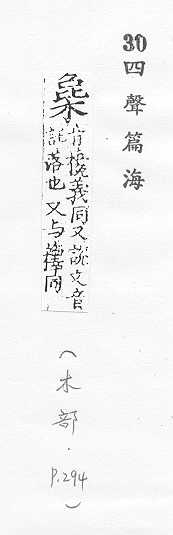 30 四聲篇海
義同又說文音
託落也 又与同
(木部．P.294)